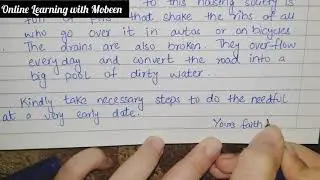 Online Learning with Mobeen
to this
full of pits that shake the ribs of all
who go over it in autos or on bicycles
The drains are also broken. They overflow
everyday and convert the road into a
big pool of dirty water.
Kindly take necessary steps to do the needful
at a very early date.
Yours faith